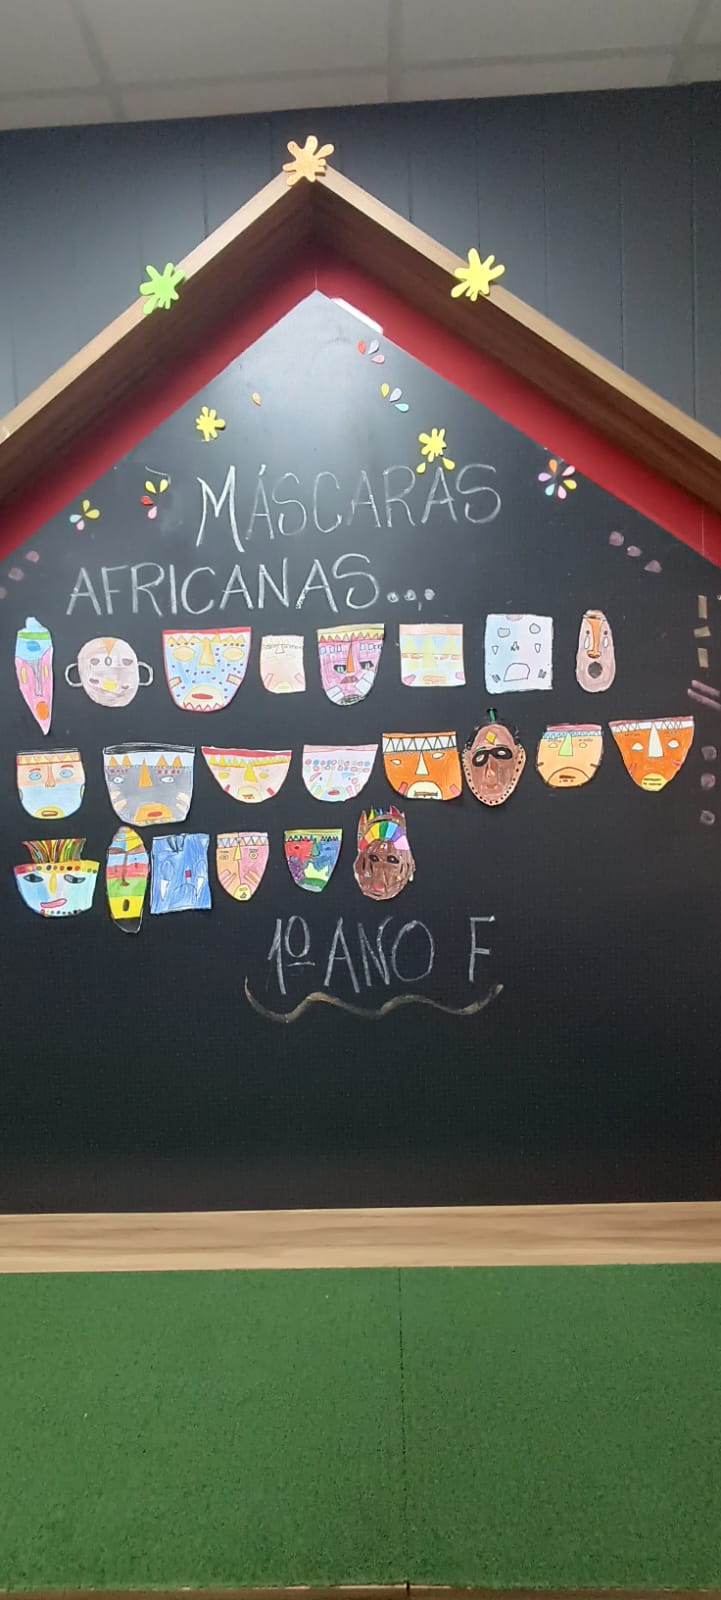 MÁSCARAS
AFRICANAS...
1º ANO F